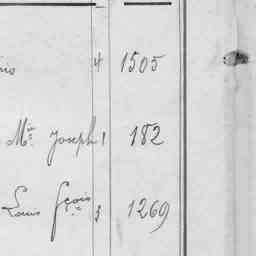 4 1505
Mr. Joseph 1 182
Louis Fçois 3 1269